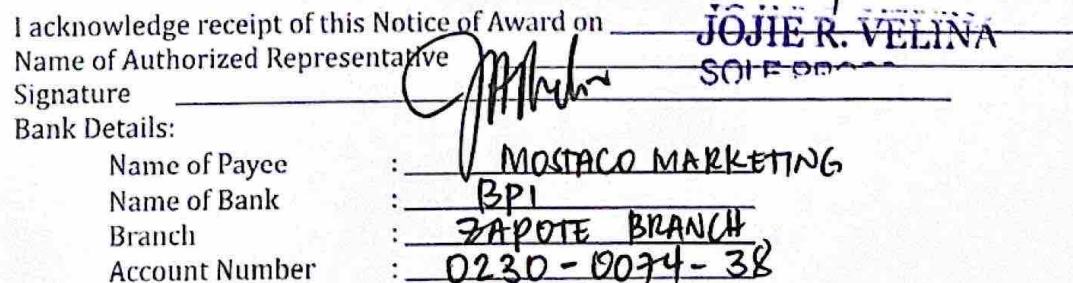 I acknowledge receipt of this Notice of Award on JOJIE R. VELINA
Name of Authorized Representative SOLE
Signature
Bank Details:
Name of Payee : MOSTACO MARKETING
Name of Bank : BPI
Branch : ZAPOTE BRANCH
Account Number : 0230-0074-38